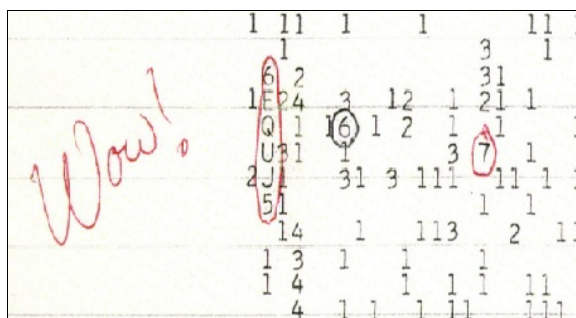 1 11 1 1 11 1
1 3 1
6 2 31
1 E 24 3 12 1 21 1
Wow! Q 1 16 1 2 1 1 1
U 31 1 3 7 1
2 J 1 31 3 111 11 1 1
5 1 1 1
14 1 113 2 11
1 3 1 1 1
1 4 1 1 1 11
4 1 1 1 11 111